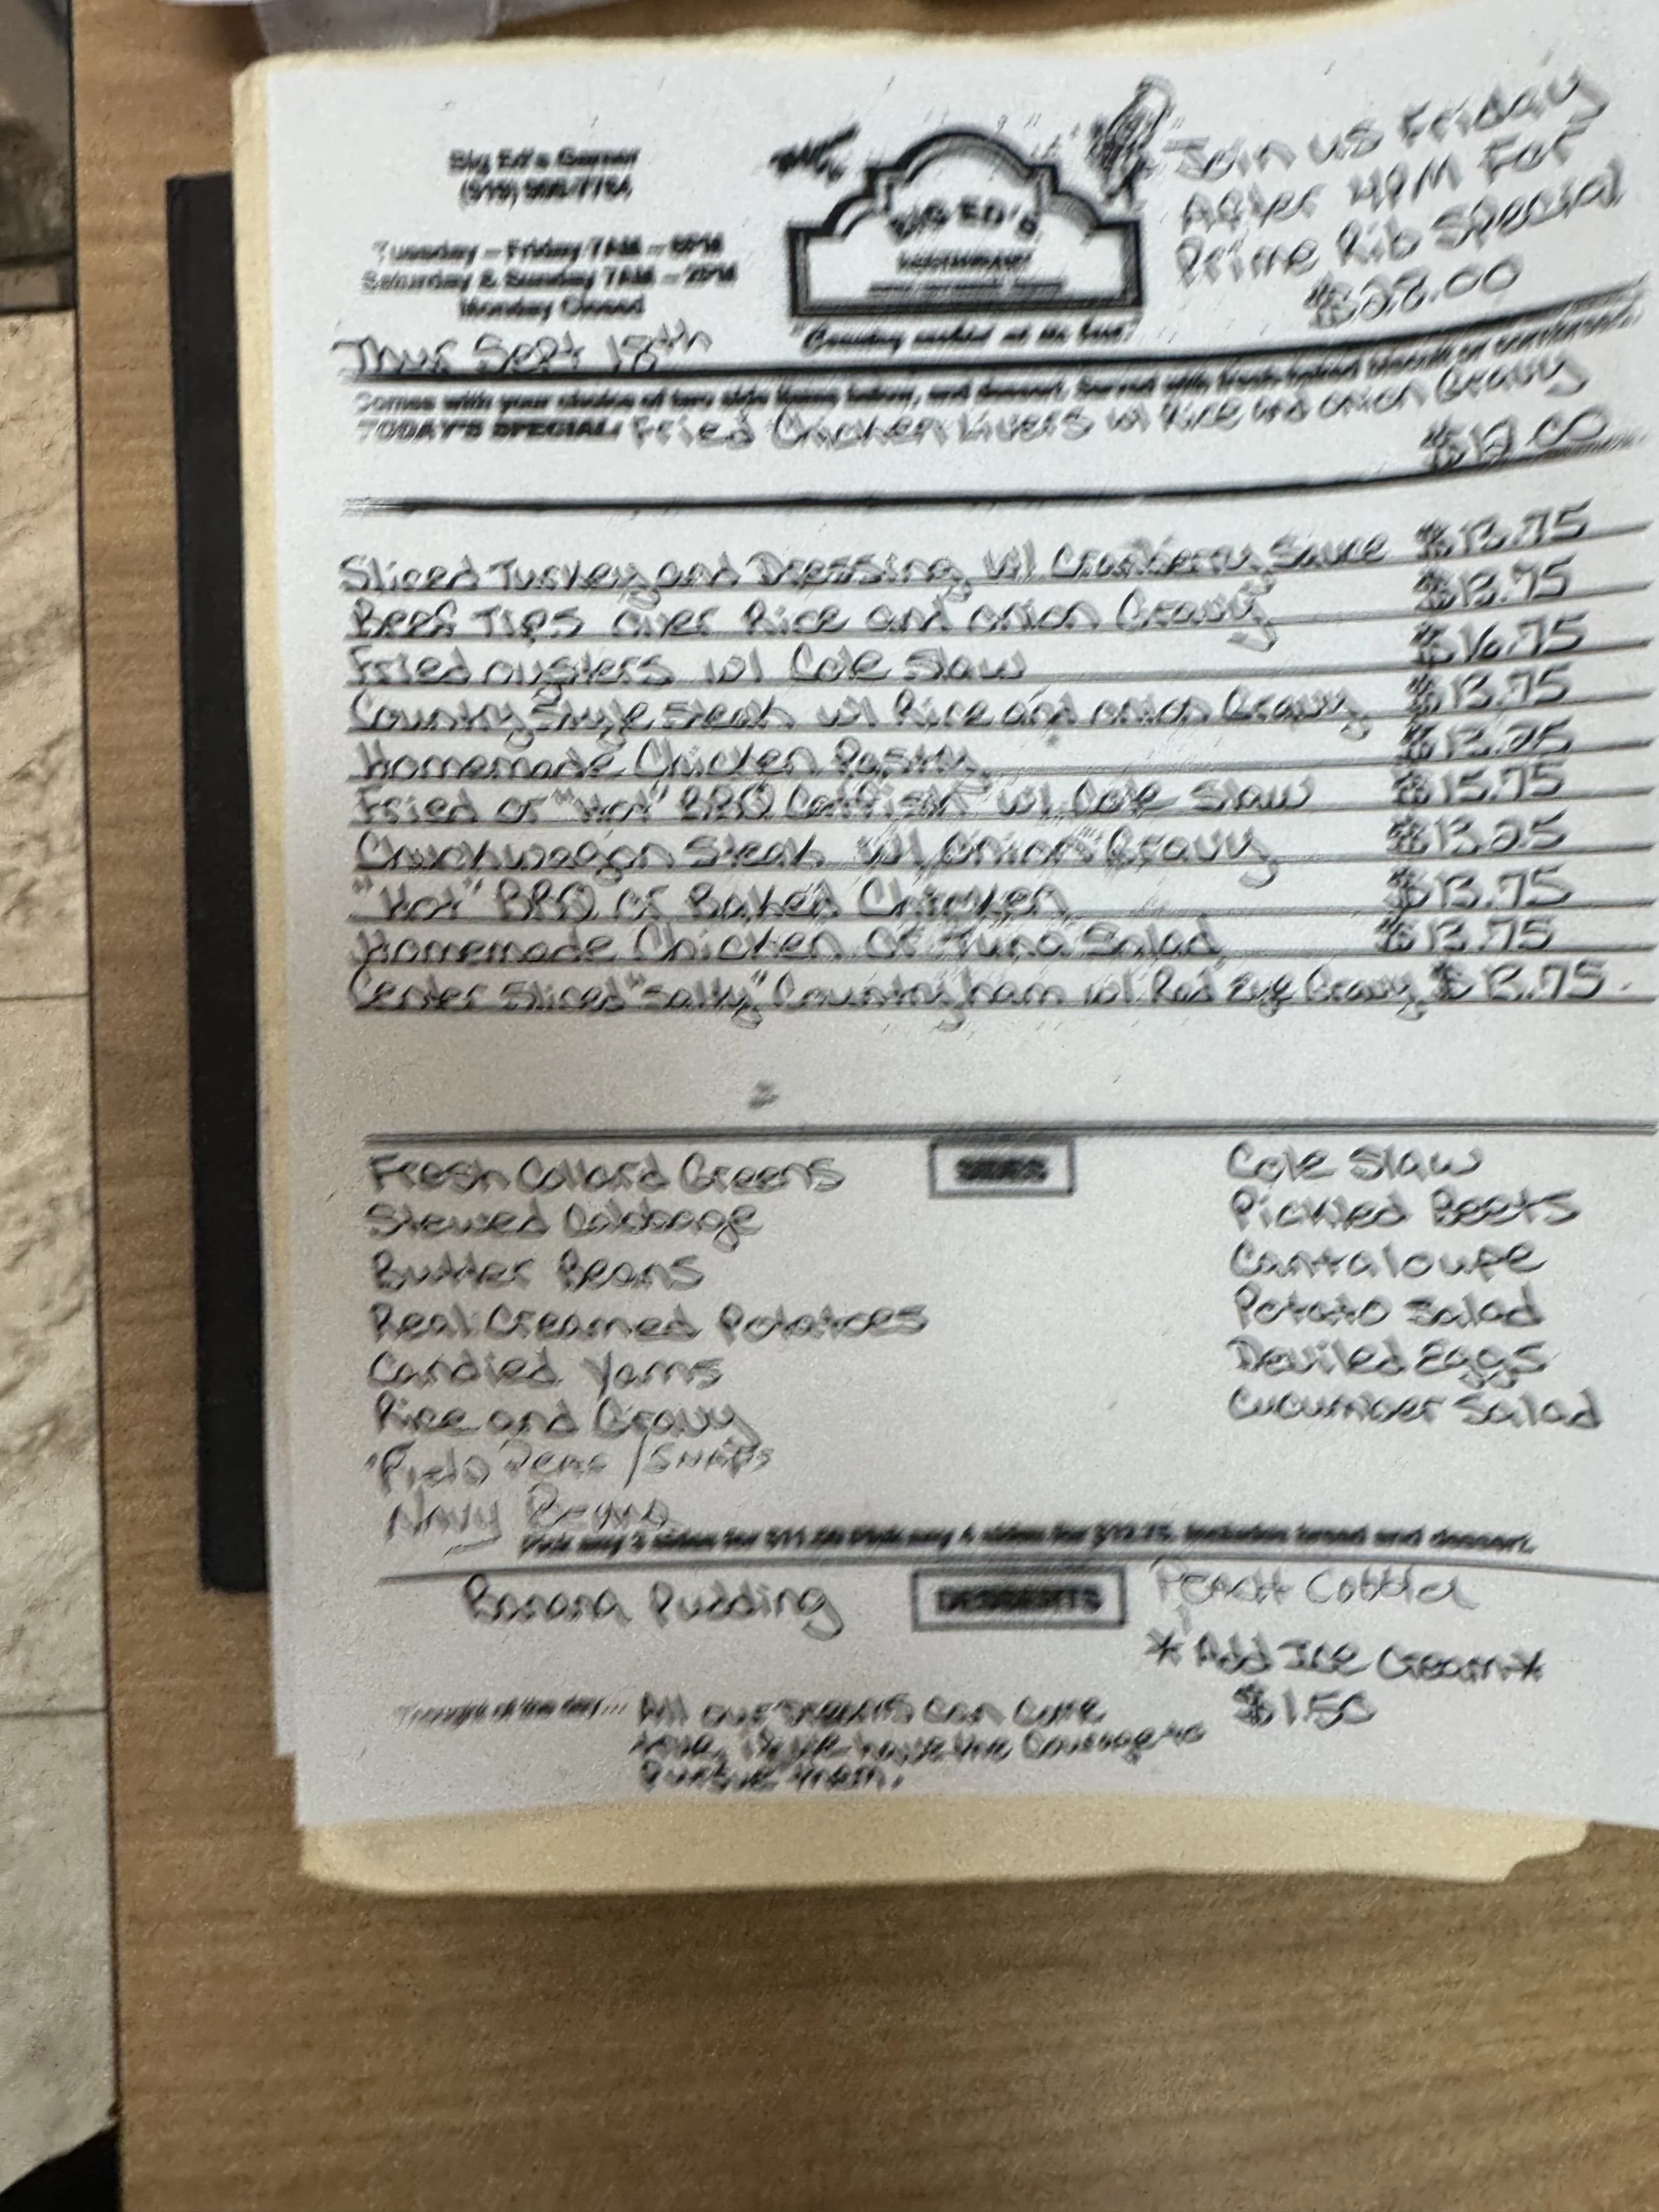 Big Ed's Garner
Tuesday – Friday 7AM – 8PM
Saturday & Sunday 7AM – 2PM
Monday Closed
Thur Sept 18th
BIG ED'S
RESTAURANT
"Country cookin' at its best"
Join us Friday
After 4PM For
Prime Rib Special
$22.00
Comes with your choice of two side items below, and dessert. Served with fresh-baked biscuits or cornbread.
TODAY'S SPECIAL: Fried Chicken Livers w/ Rice and onion Gravy
$12.00
Sliced Turkey and Dressing w/ Cranberry Sauce $13.75
Beef Tips over Rice and onion Gravy $13.75
Fried oysters w/ Cole Slaw $16.75
Country Style Steak w/ Rice and onion Gravy $13.75
Homemade Chicken Pastry $13.25
Fried or "Hot" BBQ Catfish w/ Cole Slaw $15.75
Chuckwagon Steak w/ Onion Gravy $13.25
"Hot" BBQ or Baked Chicken $13.75
Homemade Chicken or Tuna Salad $13.75
Center Sliced "Salty" Country ham w/ Red Eye Gravy $13.75
SIDES
Fresh Collard Greens
Stewed Cabbage
Butter Beans
Real Creamed Potatoes
Candied Yams
Rice and Gravy
Field Peas / Snaps
Navy Beans
Cole Slaw
Pickled Beets
Cantaloupe
Potato Salad
Deviled Eggs
Cucumber Salad
Pick any 3 sides for Pick any 4 sides for Includes bread and dessert.
DESSERTS
Banana Pudding
Peach Cobbler
*Add Ice Cream*
$1.50
Thought of the day... All our dreams can come
true, if we have the Courage to
Pursue them.